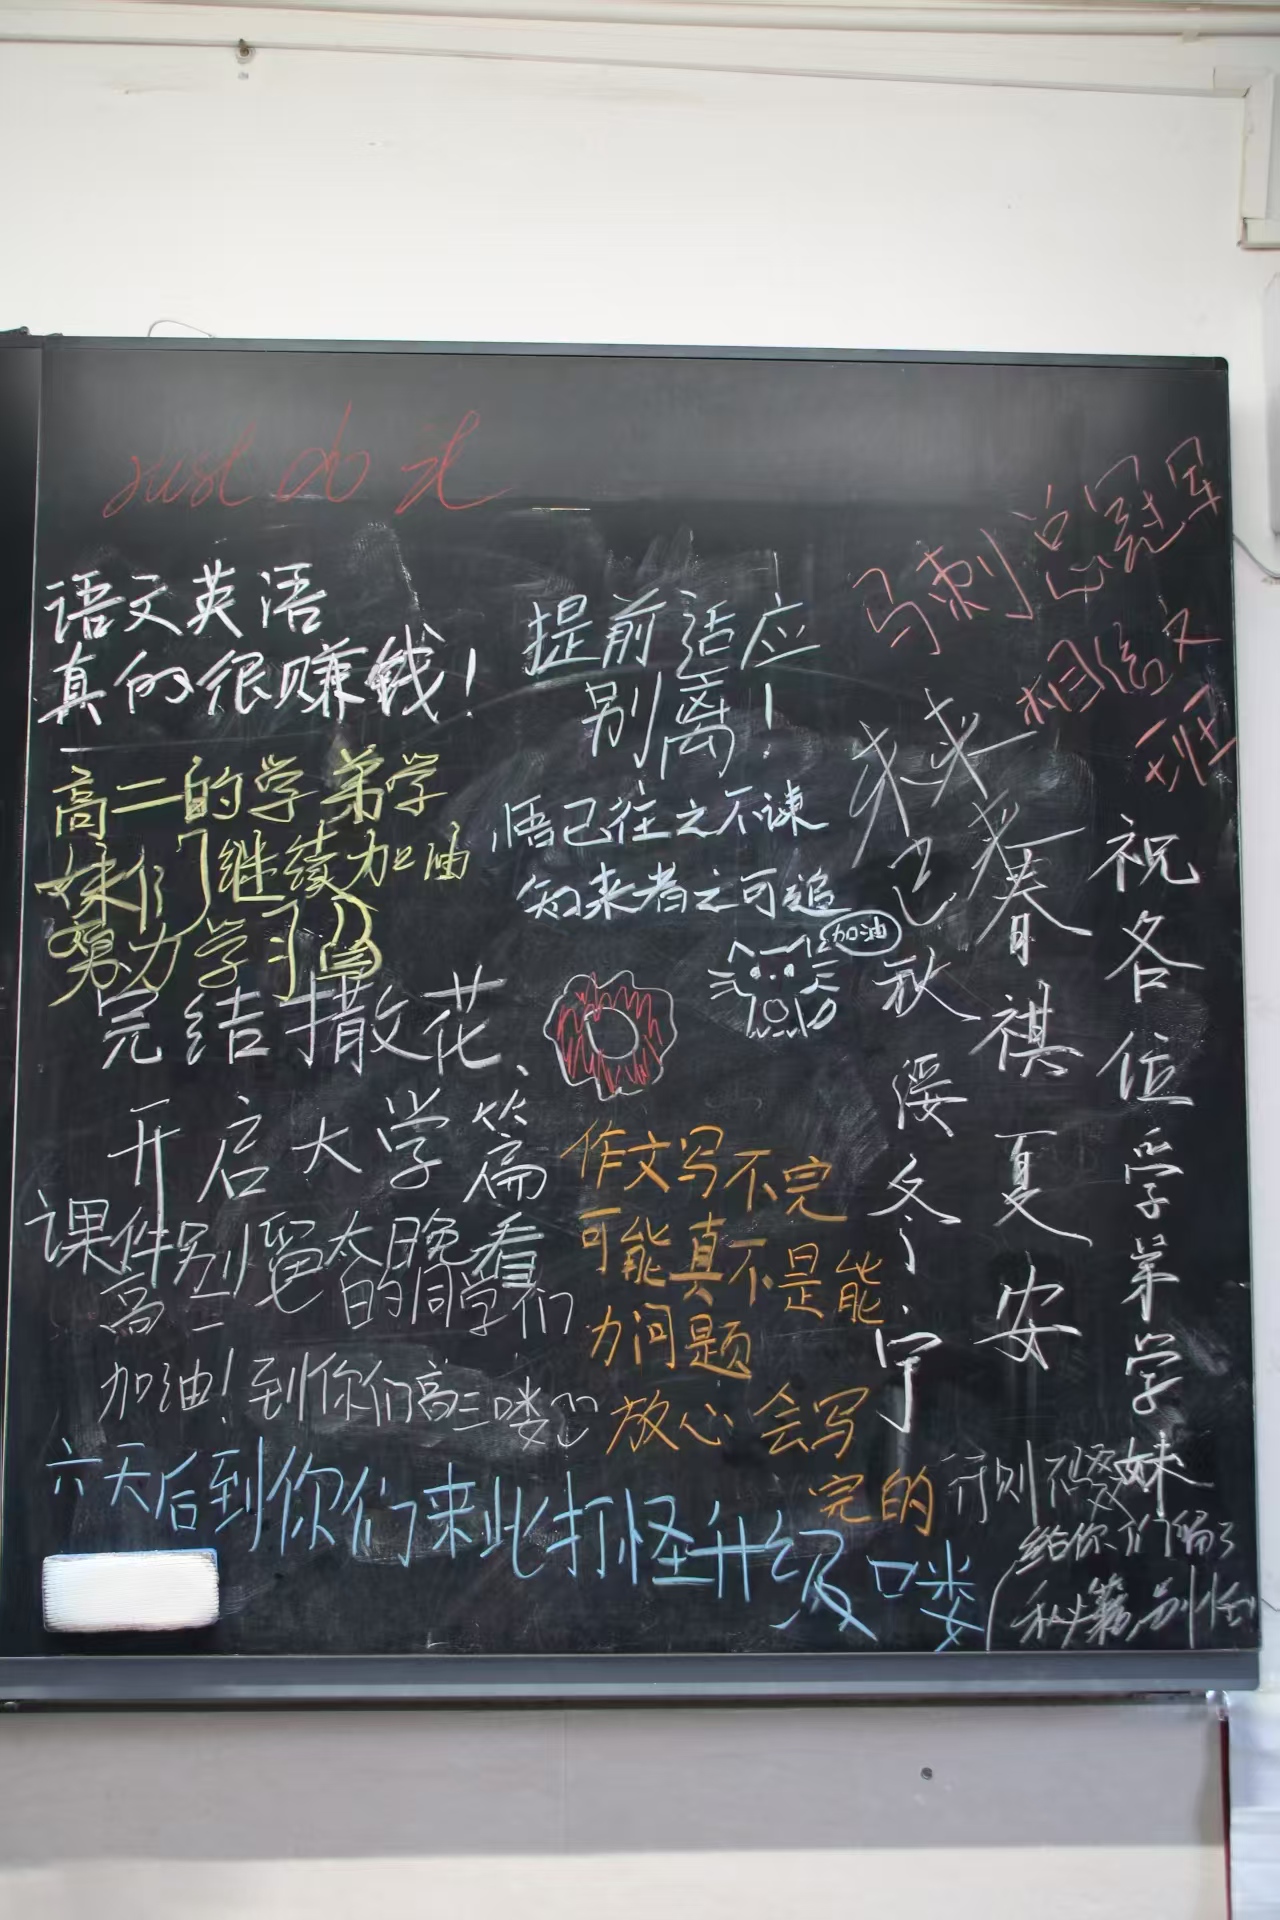 Just do it
马刺总冠军
相信文
班
语文英语
真的很赚钱!
提前适应
别离!
高二的学弟学
妹们继续加油
努力学习
悟已往之不谏
知来者之可追
加油
完结撒花、
开启大学篇
课件别留太晚看
高二的同学们
加油!到你们高三喽
作文写不完
可能真不是能
力问题
放心 会写
完的
祝各位学弟学妹
春祺夏安
秋绥冬宁
行则不辍
给你们偷了
秘籍,别怪
六天后到你们来此打怪升级喽